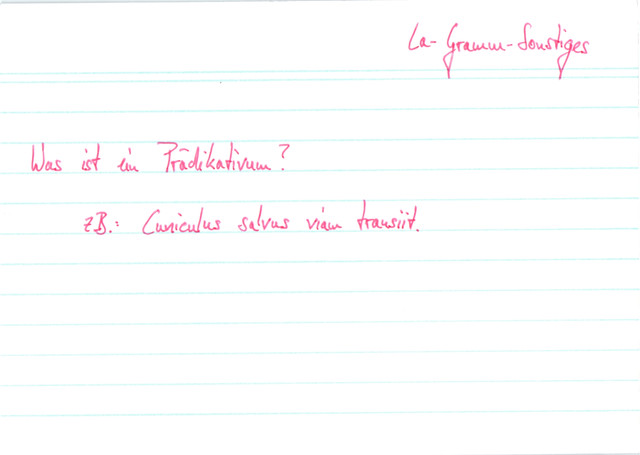 La-Gramm-Sonstiges
Was ist ein Prädikativum?
zB.: Cuniculus salvus viam transiit.